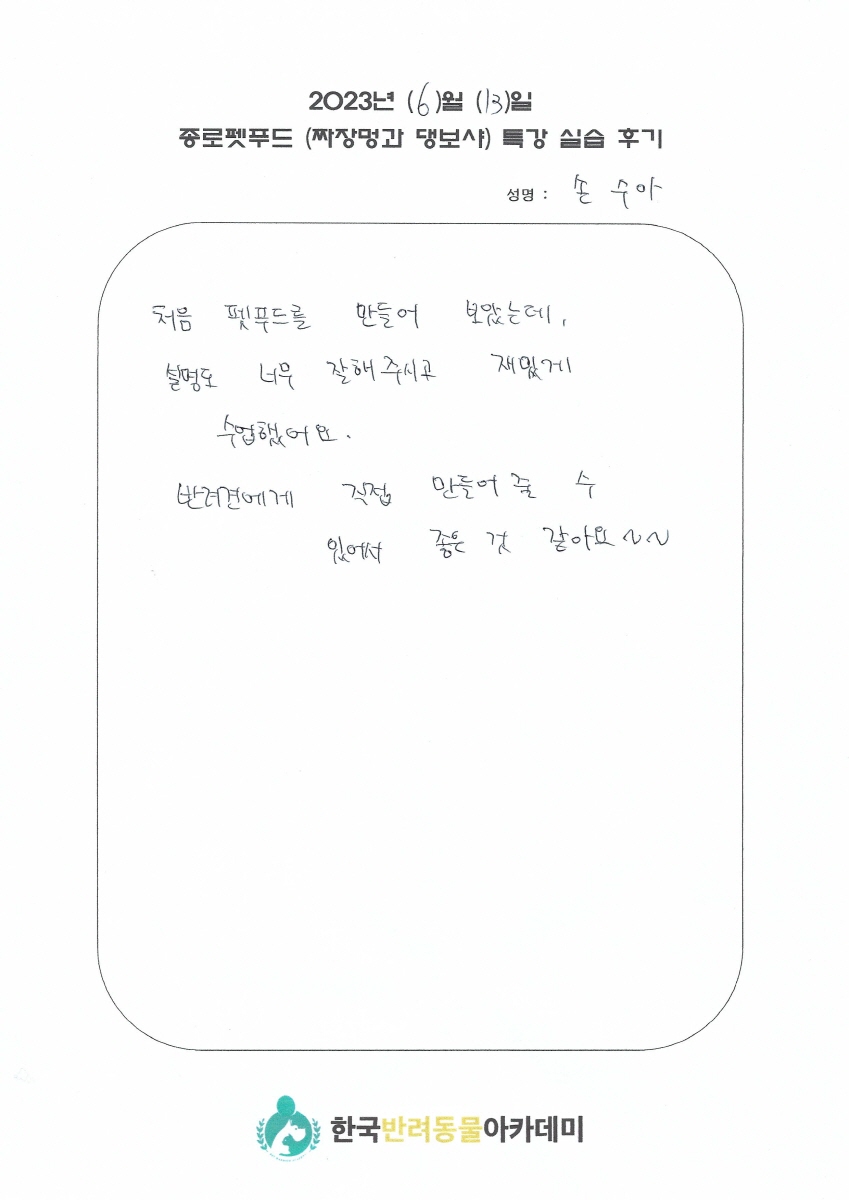 2023년 (6)월 (13)일
종로펫푸드 (짜장멍과 댕보샤) 특강 실습 후기
성명 : 손수아
처음 펫푸드를 만들어 보았는데,
설명도 너무 잘해주시고 재밌게
수업했어요.
반려견에게 직접 만들어줄 수
있어서 좋은 것 같아요~~
한국반려동물아카데미